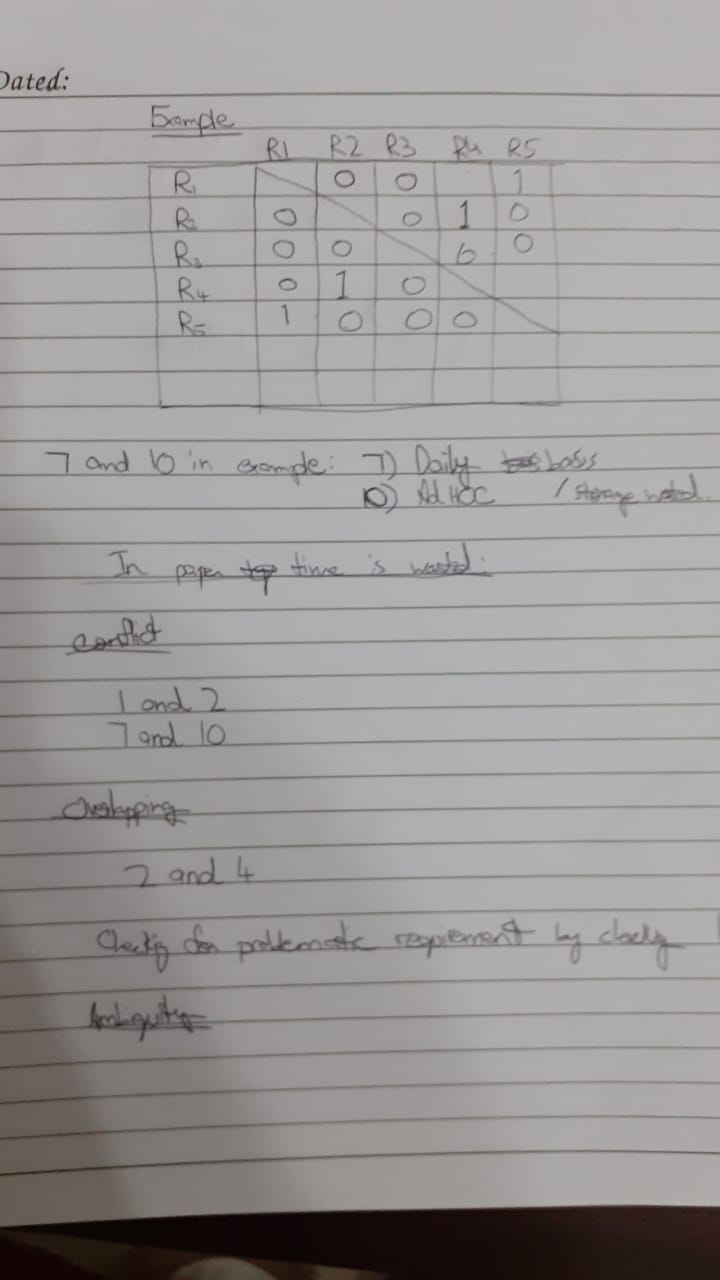 Dated:
Example
R1 R2 R3 R4 R5
R1 0 0 1
R2 0 0 1 0
R3 0 0 6 0
R4 0 1 0
R5 1 0 0 0
7 and 10 in example: 7) Daily basis
10) Ad HOC / storage
In paper time is wasted.
Conflict
1 and 2
7 and 10
Overlapping
2 and 4
Checking for problematic requirement by
Ambiguity